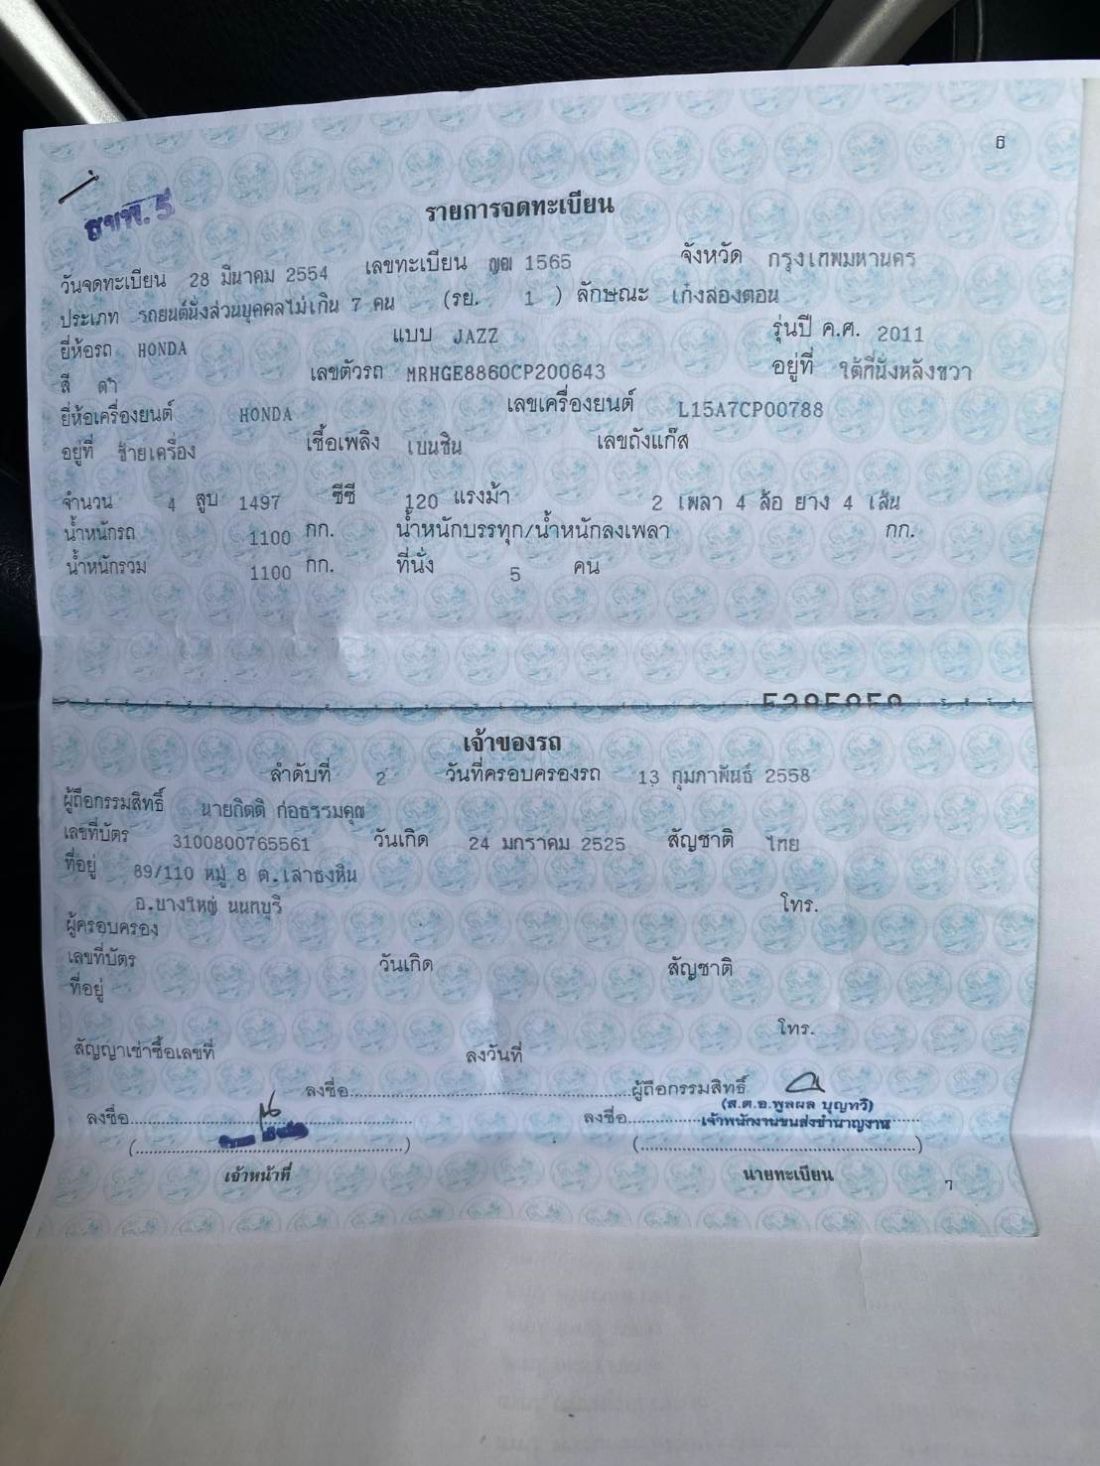 6
สขพ. 5
รายการจดทะเบียน
วันจดทะเบียน 28 มีนาคม 2554 เลขทะเบียน 1565 จังหวัด กรุงเทพมหานคร
ประเภท รถยนต์นั่งส่วนบุคคลไม่เกิน 7 คน (รย. 1 ) ลักษณะ เก๋งสองตอน
ยี่ห้อรถ HONDA แบบ JAZZ รุ่นปี ค.ศ. 2011
สี ดำ เลขตัวรถ MRHGE8860CP200643 อยู่ที่ ใต้ที่นั่งหลังขวา
ยี่ห้อเครื่องยนต์ HONDA เลขเครื่องยนต์ L15A7CP00788
อยู่ที่ ซ้ายเครื่อง เชื้อเพลิง เบนซิน เลขถังแก๊ส
จำนวน 4 สูบ 1497 ซีซี 120 แรงม้า 2 เพลา 4 ล้อ ยาง 4 เส้น
น้ำหนักรถ 1100 กก. น้ำหนักบรรทุก/น้ำหนักลงเพลา กก.
น้ำหนักรวม 1100 กก. ที่นั่ง 5 คน
เจ้าของรถ
ลำดับที่ 2 วันที่ครอบครองรถ 13 กุมภาพันธ์ 2558
ผู้ถือกรรมสิทธิ์ นายกิตติ ก่อธรรมคุณ
เลขที่บัตร 3100800765561 วันเกิด 24 มกราคม 2525 สัญชาติ ไทย
ที่อยู่ 89/110 หมู่ 8 ต.เสาธงหิน
อ.บางใหญ่ นนทบุรี โทร.
ผู้ครอบครอง
เลขที่บัตร วันเกิด สัญชาติ
ที่อยู่
โทร.
สัญญาเช่าซื้อเลขที่ ลงวันที่
ลงชื่อ........................................ผู้ถือกรรมสิทธิ์
(ส.ต.อ.พูลผล บุญทวี)
ลงชื่อ........................................ ลงชื่อ............เจ้าพนักงานขนส่งชำนาญงาน
(........................................) (........................................)
เจ้าหน้าที่ นายทะเบียน
7